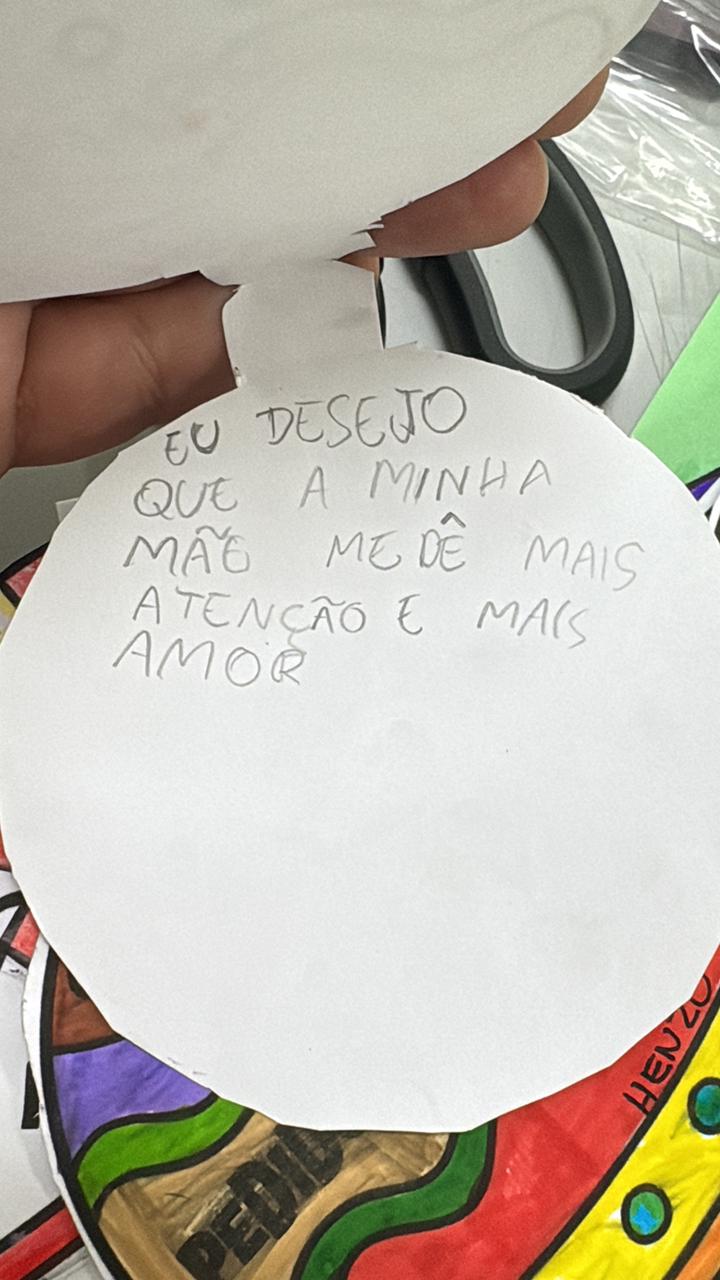 EU DESEJO
QUE A MINHA
MÃE ME DÊ MAIS
ATENÇÃO E MAIS
AMOR
HENZO